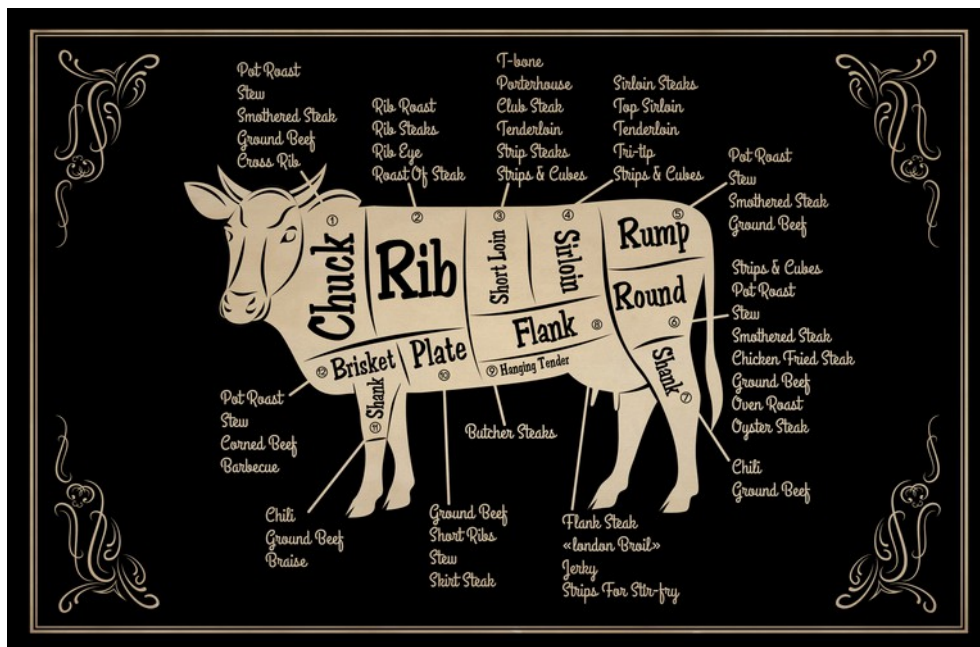 Pot Roast
Stew
Smothered Steak
Ground Beef
Cross Rib
Rib Roast
Rib Steaks
Rib Eye
Roast Of Steak
T-bone
Porterhouse
Club Steak
Tenderloin
Strip Steaks
Strips & Cubes
Sirloin Steaks
Top Sirloin
Tenderloin
Tri-tip
Strips & Cubes
Pot Roast
Stew
Smothered Steak
Ground Beef
① Chuck
② Rib
③ Short Loin
④ Sirloin
⑤ Rump
⑥ Round
⑦ Shank
⑧ Flank
⑨ Hanging Tender
⑩ Plate
⑪ Shank
⑫ Brisket
Strips & Cubes
Pot Roast
Stew
Smothered Steak
Chicken Fried Steak
Ground Beef
Oven Roast
Oyster Steak
Pot Roast
Stew
Corned Beef
Barbecue
Butcher Steaks
Chili
Ground Beef
Chili
Ground Beef
Braise
Ground Beef
Short Ribs
Stew
Skirt Steak
Flank Steak
«london Broil»
Jerky
Strips For Stir-fry